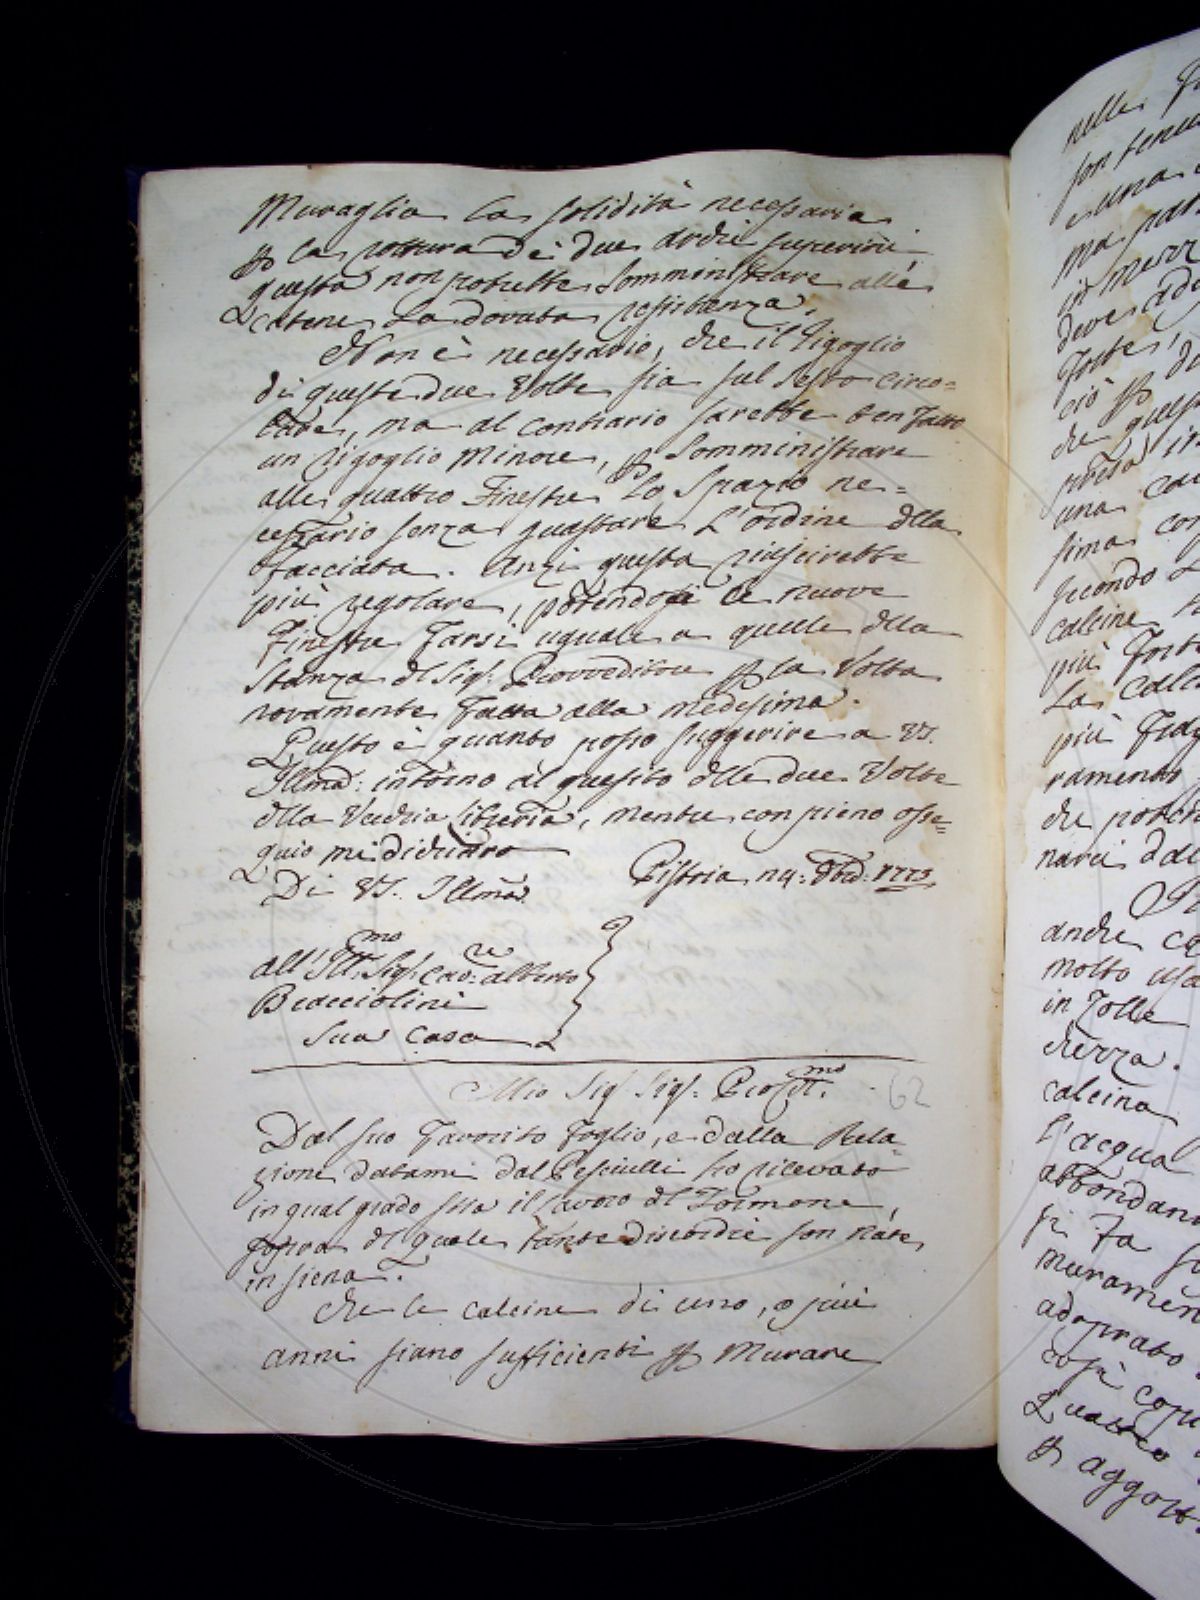 Muraglia la solidità necessaria
p la rottura de due archi superiori
questa non potrebbe somministrare alle
catene la dovuta resistenza.
Non è necessario, che il rigoglio
di queste due Volte sia sul sesto circo=
lare, ma al contrario sarebbe ben fatto
un rigoglio minore, p somministrare
alle quattro Finestre lo spazio ne=
cessario senza guastare l'ordine dlla
facciata. Anzi questa riuscirebbe
più regolare, potendosi le nuove
Finestre farsi uguale a quelle dlla
Stanza dl Sigr: Provveditore p la Volta
novamente fatta alla medesima.
Questo è quanto posso suggerire a VS.
Illma: intorno al quesito dlle due Volte
dlla Vecchia libreria, mentre con pieno osse=
quio mi dichiaro
Di VS. Illma
Pistoia 24: 1773.
all' Illmo Sigr. Cavre: Alberto
Bracciolini
sua casa
Mio Sigr. Sigr: Pro mo
62
Dal suo favorito foglio, e dalla Rela=
zione datami dal Pesciulli ho rilevato
in qual grado stia il lavoro dl Tormone,
sopra dl quale tante discordie son nate
in siena.
Che le calcine di uno, o più
anni siano sufficienti p Murare
nelle
son
e una
ma
in
deve
ciò p
che
una
sima
secondo
calcine
più
La calc
più
ramento
che
narci dal
anche
molto usa
in
chezza.
calcina
l'acqua
abbondan
si fa
muramen
adoprato
così
Quattro
p